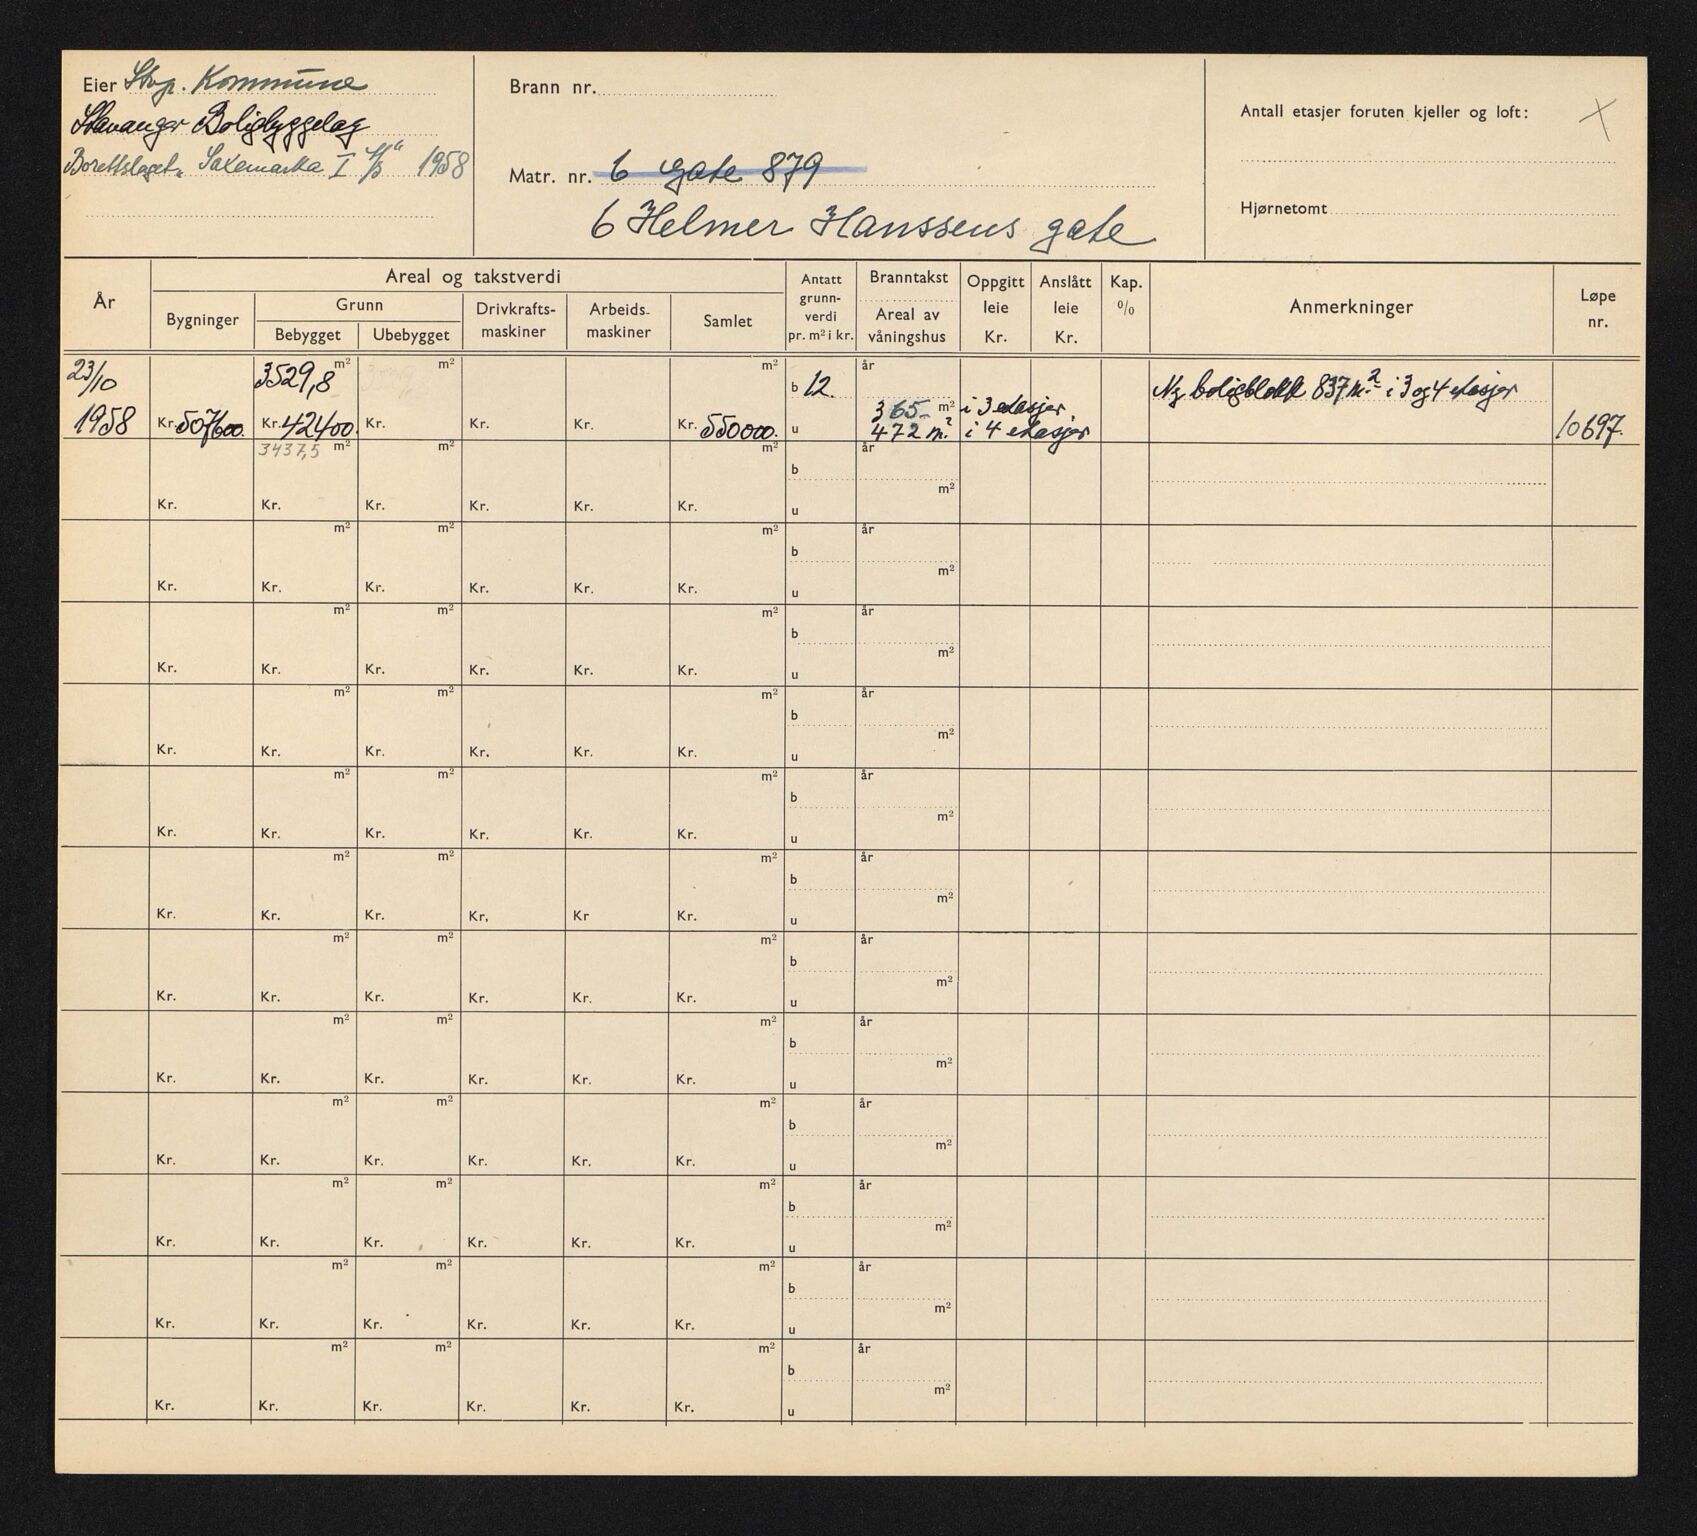 Eier Stvg. Kommune
Stavanger Boligbyggelag
Borettslaget „Saxemarka I“ 1958
Brann nr.
Matr. nr. 6 gate 879
6 Helmer Hanssens gate
Antall etasjer foruten kjeller og loft:
Hjørnetomt
År
Areal og takstverdi
Bygninger
Grunn
Bebygget Ubebygget
Drivkrafts-
maskiner
Arbeids-
maskiner
Samlet
Antatt
grunn-
verdi
pr. m² i kr.
Branntakst
Areal av
våningshus
Oppgitt
leie
Kr.
Anslått
leie
Kr.
Kap.
%
Anmerkninger
Løpe
nr.
23/10 3529,8 m² m² m² b 12. år Ny boligblokk 837 m² i 3 og 4 etasjer
365 m² i 3 etasjer,
1958 Kr. 507600. Kr. 42400. Kr. Kr. Kr. Kr. 550000. u 472 m² i 4 etasjer 10697.
3437,5 m² m² m² år
b
m²
Kr. Kr. Kr. Kr. Kr. Kr. u
m² m² m² år
b
m²
Kr. Kr. Kr. Kr. Kr. Kr. u
m² m² m² år
b
m²
Kr. Kr. Kr. Kr. Kr. Kr. u
m² m² m² år
b
m²
Kr. Kr. Kr. Kr. Kr. Kr. u
m² m² m² år
b
m²
Kr. Kr. Kr. Kr. Kr. Kr. u
m² m² m² år
b
m²
Kr. Kr. Kr. Kr, Kr Kr. u
m² m² m² år
b
m²
Kr. Kr. Kr. Kr. Kr. Kr. u
m² m² m² år
b
m²
Kr. Kr. Kr. Kr. Kr. Kr. u
m² m² m² år
b
m²
Kr. Kr. Kr. Kr. Kr. Kr. u
m² m² m² år
b
m²
Kr. Kr. Kr. Kr. Kr. Kr. u
m² m² m² år
b
m²
Kr. Kr. Kr. Kr. Kr. Kr. u
m² m² m² år
b
m²
Kr. Kr. Kr. Kr. Kr. Kr. u